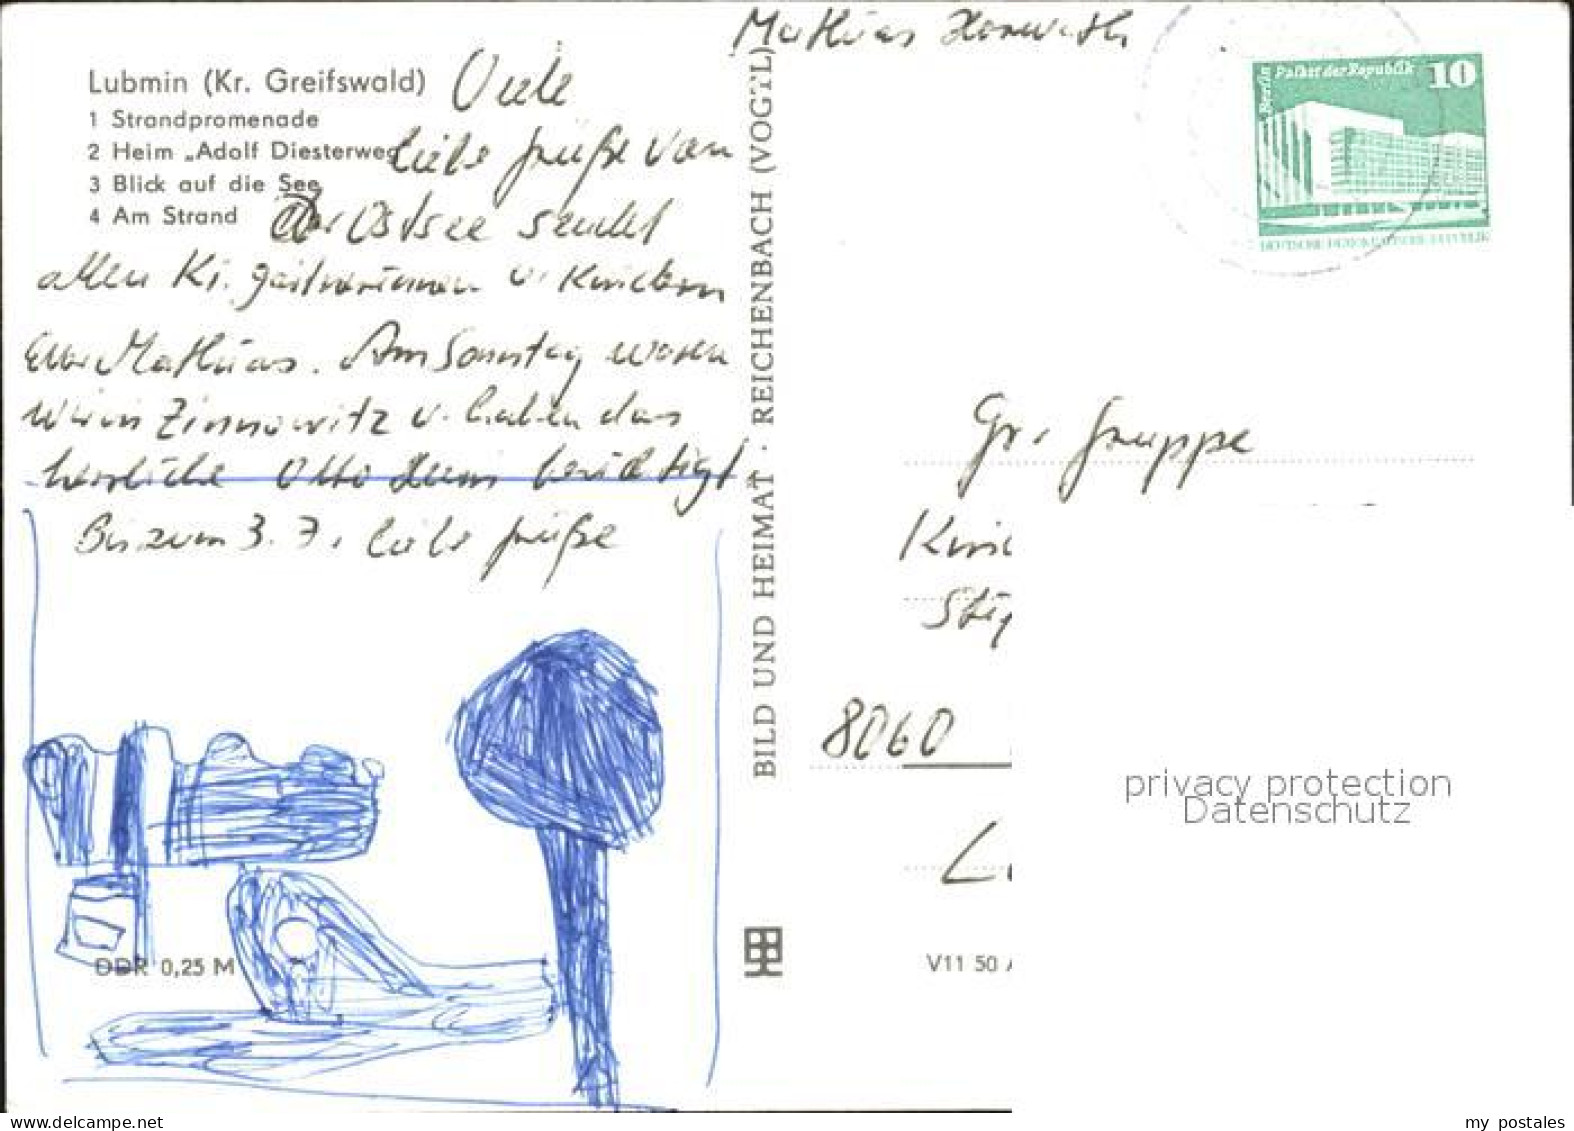 Mathias
Lubmin (Kr. Greifswald)
1 Strandpromenade
2 Heim „Adolf Diesterweg
3 Blick auf die See
4 Am Strand
Viele
liebe Grüße von
der Ostsee sendet
allen Ki. gärtnerinnen u. Kindern
Euer Mathias. Am Sonntag waren
wir in Zinnowitz u. haben das
herrliche Otto Heim besichtigt
Bis zum 3. 7. liebe Grüße
DDR 0,25 M
BILD UND HEIMAT · REICHENBACH (VOGTL)
Berlin Palast der Republik 10
DEUTSCHE DEMOKRATISCHE REPUBLIK
Gr. Gruppe
8060
V11 50
privacy protection
Datenschutz
www.delcampe.net
my_postales